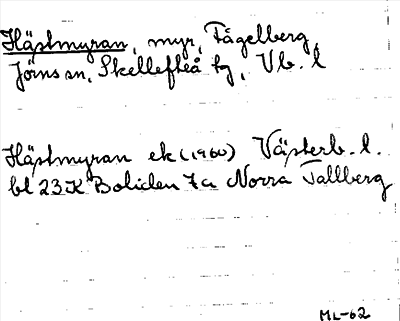 Hästmyran, myr, Fågelberg,
Jörns sn, Skellefteå tg, Vb. l
Hästmyran ek (1960) Västerb. l.
bl 23K Boliden 7a Norra Tallberg
ML-62